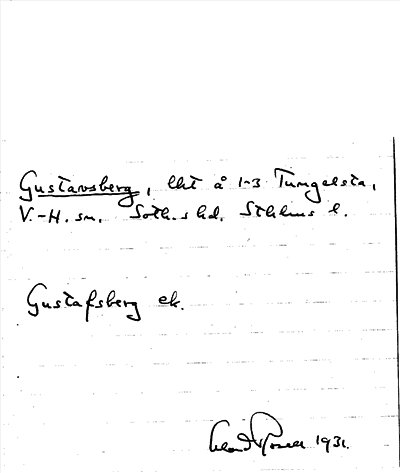 Gustavsberg, lht å 1-3 Tungelsta,
V.-H. sn. Soth.s hd. Sthlms l.
Gustafsberg ek.
1931.